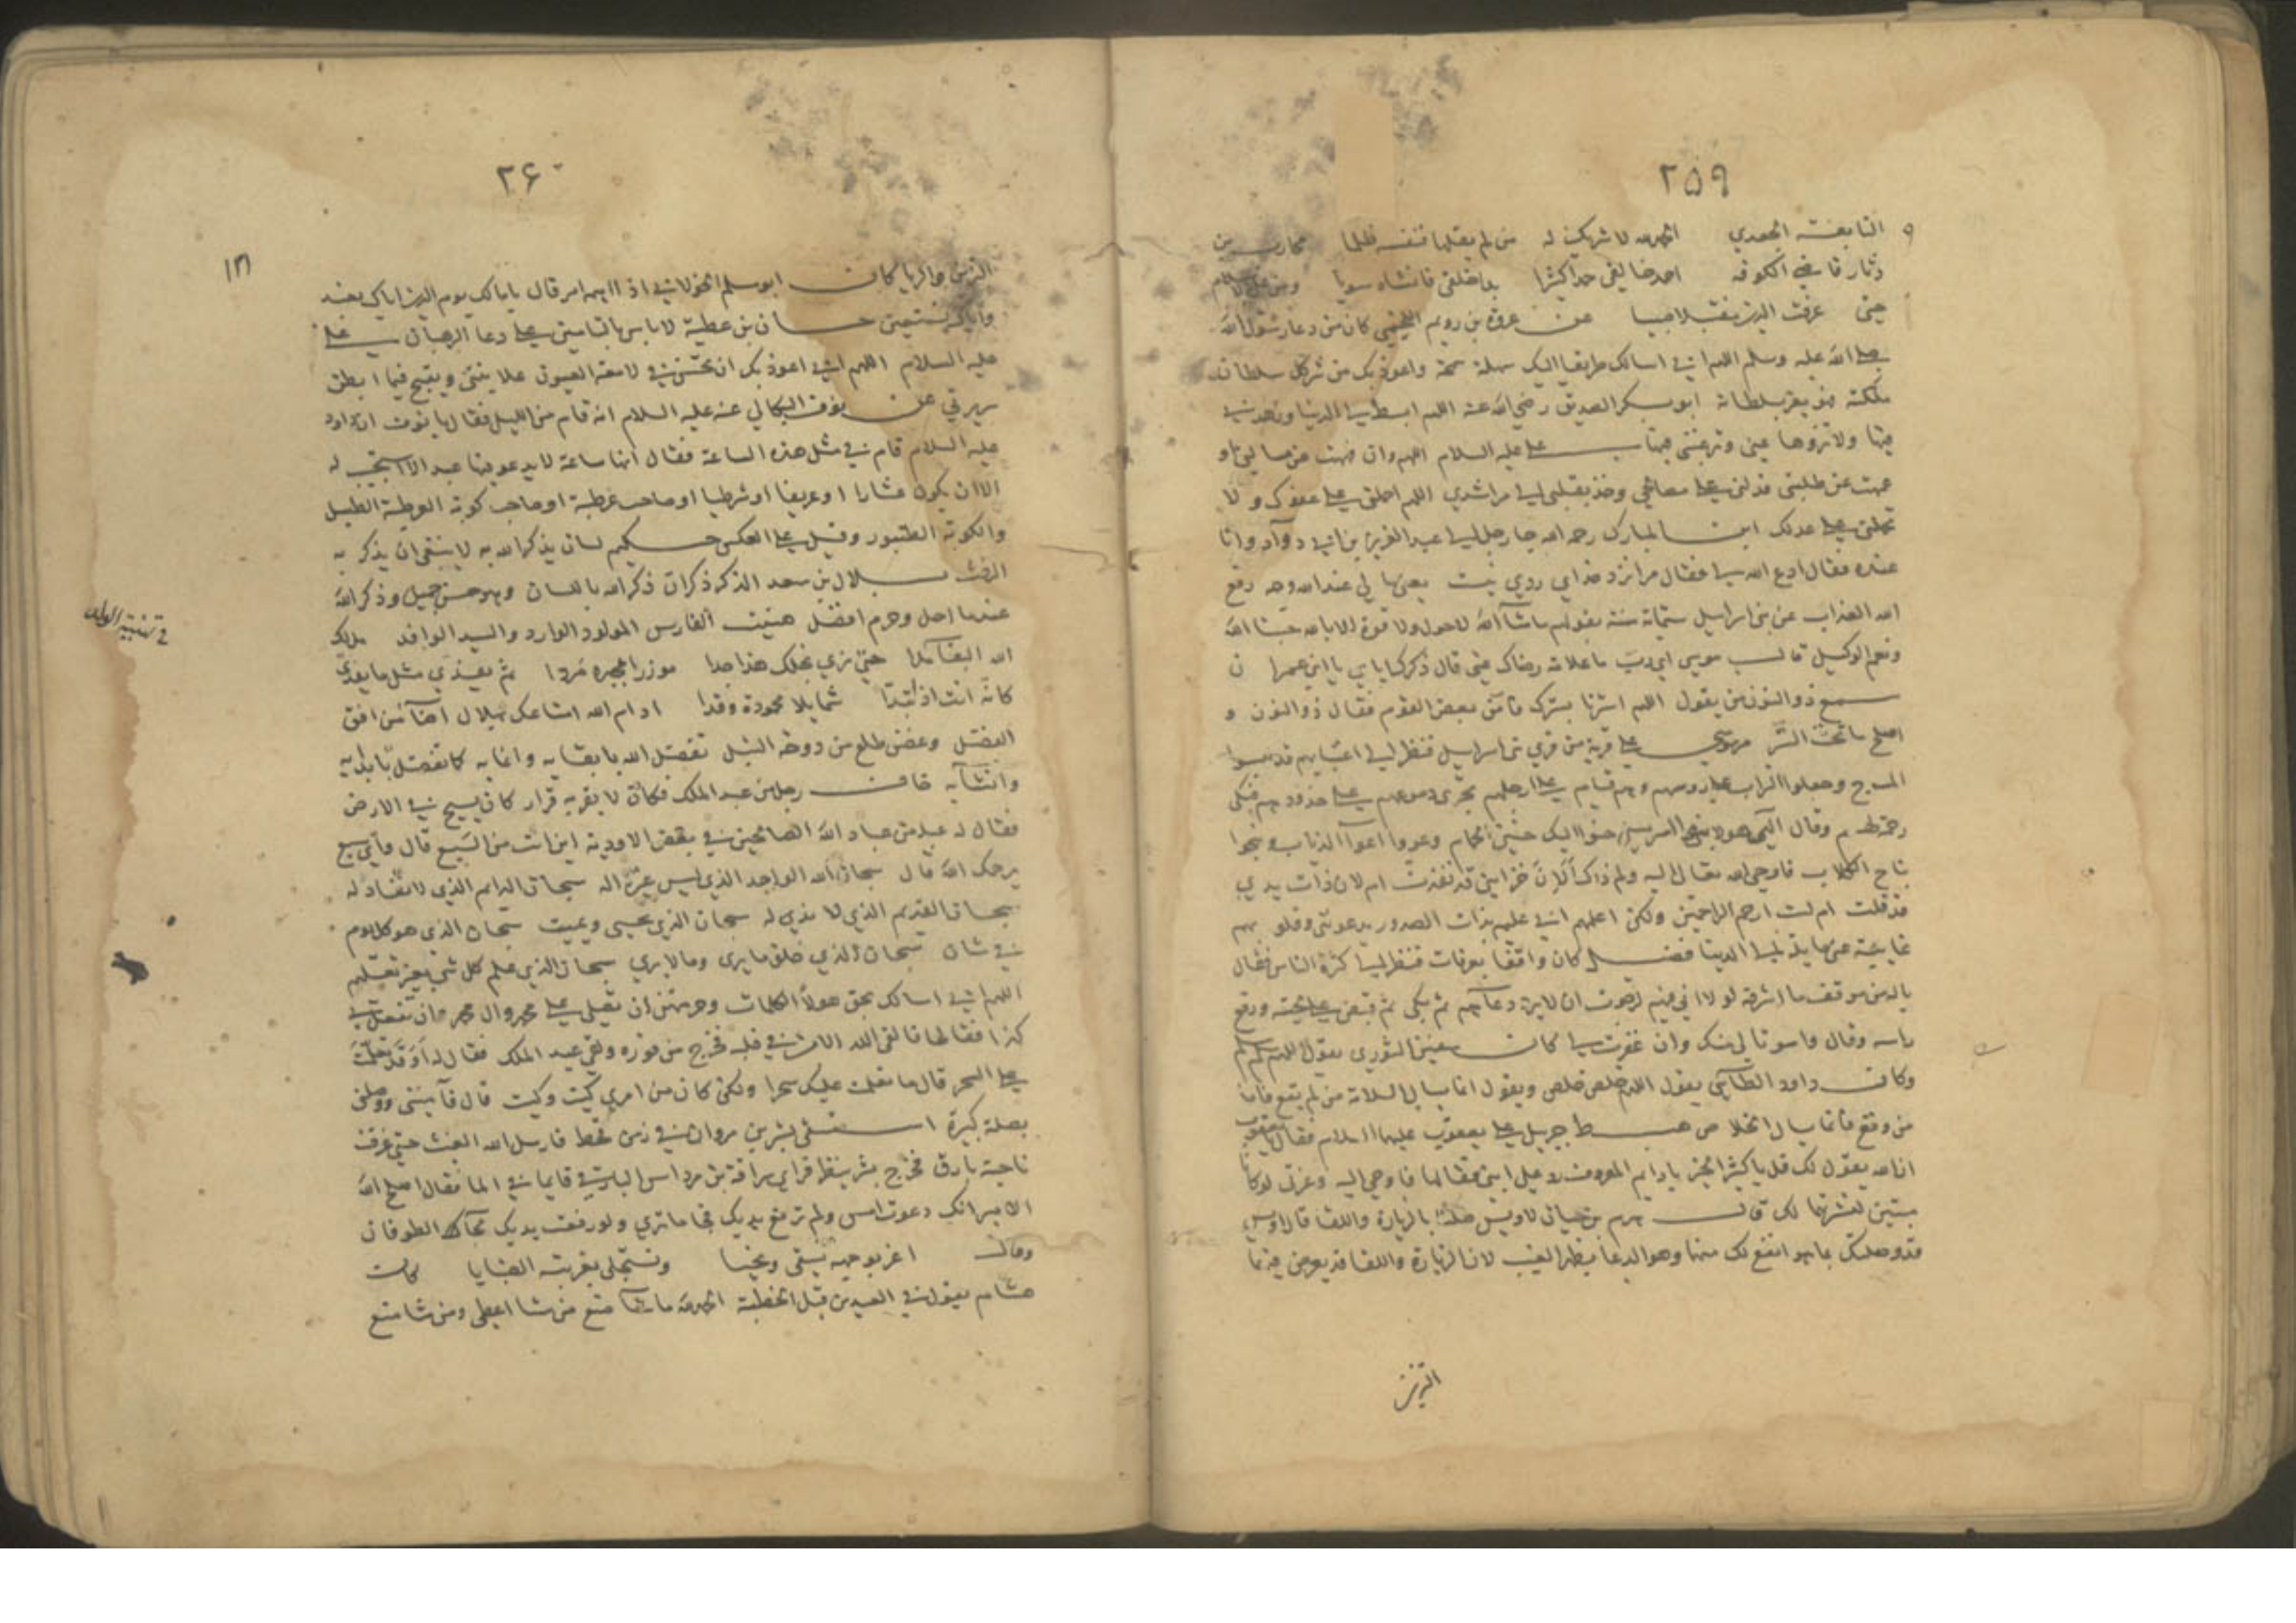 ٢٥٩
النابغة الجعدي الحمد لله لا شريك له من لم يقلها فنفسه ظلما محارب بن
دثار قاضي الكوفة احمد خالقي حمدا كثيرا بما خلقني فانشاه سويا
حتى عن عروة بن رويم اللخمي كان من دعا رسول الله
صلى الله عليه وسلم اللهم اني اسالك طريقا اليك سهلة سمحة واعوذ بك من شر كل سلطان
ملكته فهو يعز بسلطانه ابو بكر الصديق رضي الله عنه اللهم ابسط لي الدنيا وزهدني
فيها ولا تزوها عني وترغبني فيها علي عليه السلام اللهم وان فههت عن مسالتي او
عمهت عن طلبتي فدلني على مصالحي وخذ بقلبي الى مراشدي اللهم احملني على عفوك ولا
تحملني على عدلك ابن المبارك رحمه الله جا رجل الى عبد العزيز بن ابي روآد وانا
عنده فقال ادع الله لي فقال لي عند الله وجه رفع
الله العذاب عن بني اسرايل ستماية سنة بقولهم ما شآ الله لا حول ولا قوة الا بالله حسبنا الله
ونعم الوكيل قال موسى اي رب ما علامة رضاك عني قال ذكرك اياي يا ابن عمران
سمع ذو النون من يقول اللهم استرنا بسترك فآمن بعض القوم فقال ذو النون و
اصلح ما تحت الستر مر موسى على قرية من قرى بني اسرايل فنظر الى اغنيايهم قد لبسوا
المسوح وجعلوا التراب على روسهم وهم قيام على ارجلهم تجري دموعهم على خدودهم فبكى
رحمة لهم وقال الهي هولا بنو اسرايل حنوا اليك حنين الحمام وعووا عوآ الذياب ونبحوا
نباح الكلاب فاوحى الله تعالى اليه ولم ذاك الان خزاينى قد نفدت ام لان ذات يدي
قد قلت ام لست ارحم الراحمين ولكن اعلمهم اني عليم بذات الصدور يدعونني وقلوبهم
غايبة عني مايلة الى الدنيا فضيل كان واقفا بعرفات فنظر الى كثرة الناس فقال
ياله من موقف ما اشرفه لولا اني فيهم لرجوت ان لا يرد دعآهم ثم بكى ثم قبض على لحيته ورفع
راسه وقال واسوتا لي منك وان غفرت لي كان سفين الثوري يقول اللهم سلم سلم
وكان داود الطآي يقول اللهم خلص خلص ويقول انما يسال السلامة من لم يقع فاما
من وقع فانما يسال الخلاص هبط جبريل على يعقوب عليهما السلام فقال يا يعقوب
ان الله يقول لك قل يا كثير الخير يا دايم المعروف رد علي ابني فقالها فاوحى اليه وعزتي لو كانا
ميتين لنشرتهما لك قال هرم بن حيان لاويس صلنا بالزيارة واللقا قال اويس
قد وصلتك بما هو انفع لك منهما وهو الدعا بظهر الغيب لان الزيارة واللقا قد يعرض فيهما
التزين
٢۶٠
التزين والريا كان ابو مسلم الخولاني اذا اهمه امر قال يا مالك يوم الدين اياك نعبد
واياك نستعين حسان بن عطية لا باس بالتامين على دعا الرهبان علي
عليه السلام اللهم اني اعوذ بك ان تحسن في لامعة العيون علانيتي وتقبح فيما ابطن
سريرتي عن نوف البكالي عنه عليه السلام انه قام من الليل فقال يا نوف ان داود
عليه السلام قام في مثل هذه الساعة فقال انها ساعة لا يدعو فيها عبد الا استجيب له
الا ان يكون عشارا او عريفا او شرطيا او صاحب عرطبة او صاحب كوبة العرطبة الطبل
والكوبة الطنبور وقيل على العكس حكيم لسان يذكر الله به لا ينبغي ان يذكر به
الرفث بلال بن سعد الذكر ذكران ذكر الله باللسان وهو حسن جميل وذكر الله
عندما احل وحرم افضل هنيت الفارس المولود الوارد والسيد الوافد
حتى ترى نجلك هذا جدا موزرا بمجده مردا ثم يفدى مثل ما يفدى
كانه انت اذا تبدا شمايلا محمودة وقدا ادام الله امتاعك بهلال من افق
الفضل وغصن طلع من دوحة النبل تفضل الله بابقايه وانمايه كما تفضل بابدايه
وانشآيه خاف رجل من عبد الملك فكان لا يقر به قرار كان يسيح في الارض
فقال له عبد من عباد الله الصالحين في بعض الاودية اين انت من السبع قال وآي سبع
يرحمك الله قال سبحان الله الواحد الذي ليس غيره اله سبحان الدايم الذي لا نفاد له
سبحان القديم الذي لا ند له سبحان الذي يحيي ويميت سبحان الذي هو كل يوم
في شان سبحان الذي خلق ما يرى وما لا يرى سبحان الذي علم كل شي بغير تعليم
اللهم اني اسالك بحق هولا الكلمات وحرمتهن ان تصلي على محمد وال محمد وان تفعل بي
كذا فقالها فالقى الله الامن في قلبه فخرج من فوره ولقي عبد الملك فقال له اوقد تعلمت
علي السحر قال ما تعلمت عليك سحرا ولكن كان من امري كيت وكيت قال فآمنني ووصلني
بصلة كبيرة استسقى بشر بن مروان في زمن قحط فارسل الله الغيث حتى غرقت
ناحية بارق فخرج بشر ينظر فراى سراقة بن مرداس البارقي قايما في الما فقال اصلح الله
الامير انك دعوت امس ولم ترفع يديك فجا ما ترى ولو رفعت يديك لجآك الطوفان
وقال اغر بوجهه يسقى ونحيا ونستجلى بغرته كان
هشام يقول في العيدين قبل الخطبة الحمد لله ما شآ صنع من شا اعطى ومن شا منع
في تهنية الولد